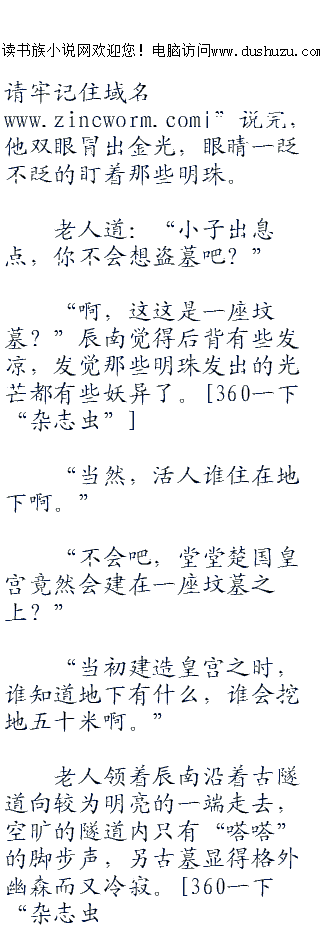 读书族小说网欢迎您！电脑访问www.dushuzu.com
请牢记住域名
www.zincworm.com|”说完，
他双眼冒出金光，眼睛一眨
不眨的盯着那些明珠。
老人道：“小子出息
点，你不会想盗墓吧？”
“啊，这这是一座坟
墓？”辰南觉得后背有些发
凉，发觉那些明珠发出的光
芒都有些妖异了。[360一下
“杂志虫”]
“当然，活人谁住在地
下啊。”
“不会吧，堂堂楚国皇
宫竟然会建在一座坟墓之
上？”
“当初建造皇宫之时，
谁知道地下有什么，谁会挖
地五十米啊。”
老人领着辰南沿着古隧
道向较为明亮的一端走去，
空旷的隧道内只有“嗒嗒”
的脚步声，另古墓显得格外
幽森而又冷寂。[360一下
“杂志虫